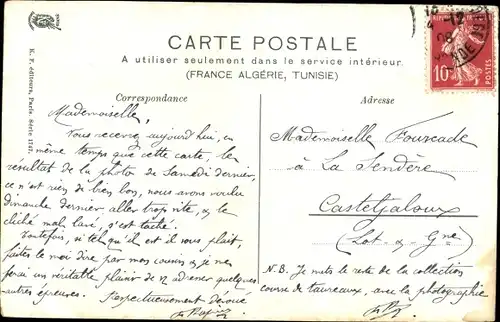 CARTE POSTALE
A utiliser seulement dans le service intérieur.
(FRANCE ALGÉRIE, TUNISIE)
K. F. éditeurs, Paris. Série 1747.
POSTES
10
Correspondance
Mademoiselle,
Vous recevrez aujourd'hui, en
même temps que cette carte, le
résultat de la photo de Samedi dernier,
ce n'est rien de bien bon, nous avons voulu
dimanche dernier, aller trop vite, & le
cliché mal lavé, s'est taché.
Toutefois, si tel qu'il est il vous plait,
faites le moi dire par mon cousin & je me
ferai un véritable plaisir de adresser quelques
autres épreuves. Respectueusement dévoué
Adresse
Mademoiselle Fourcade
à La Sendère
Casteljaloux
(Lot-&-Gne)
N.B. Je mets le reste de la collection
course de taureaux, avec la photographie